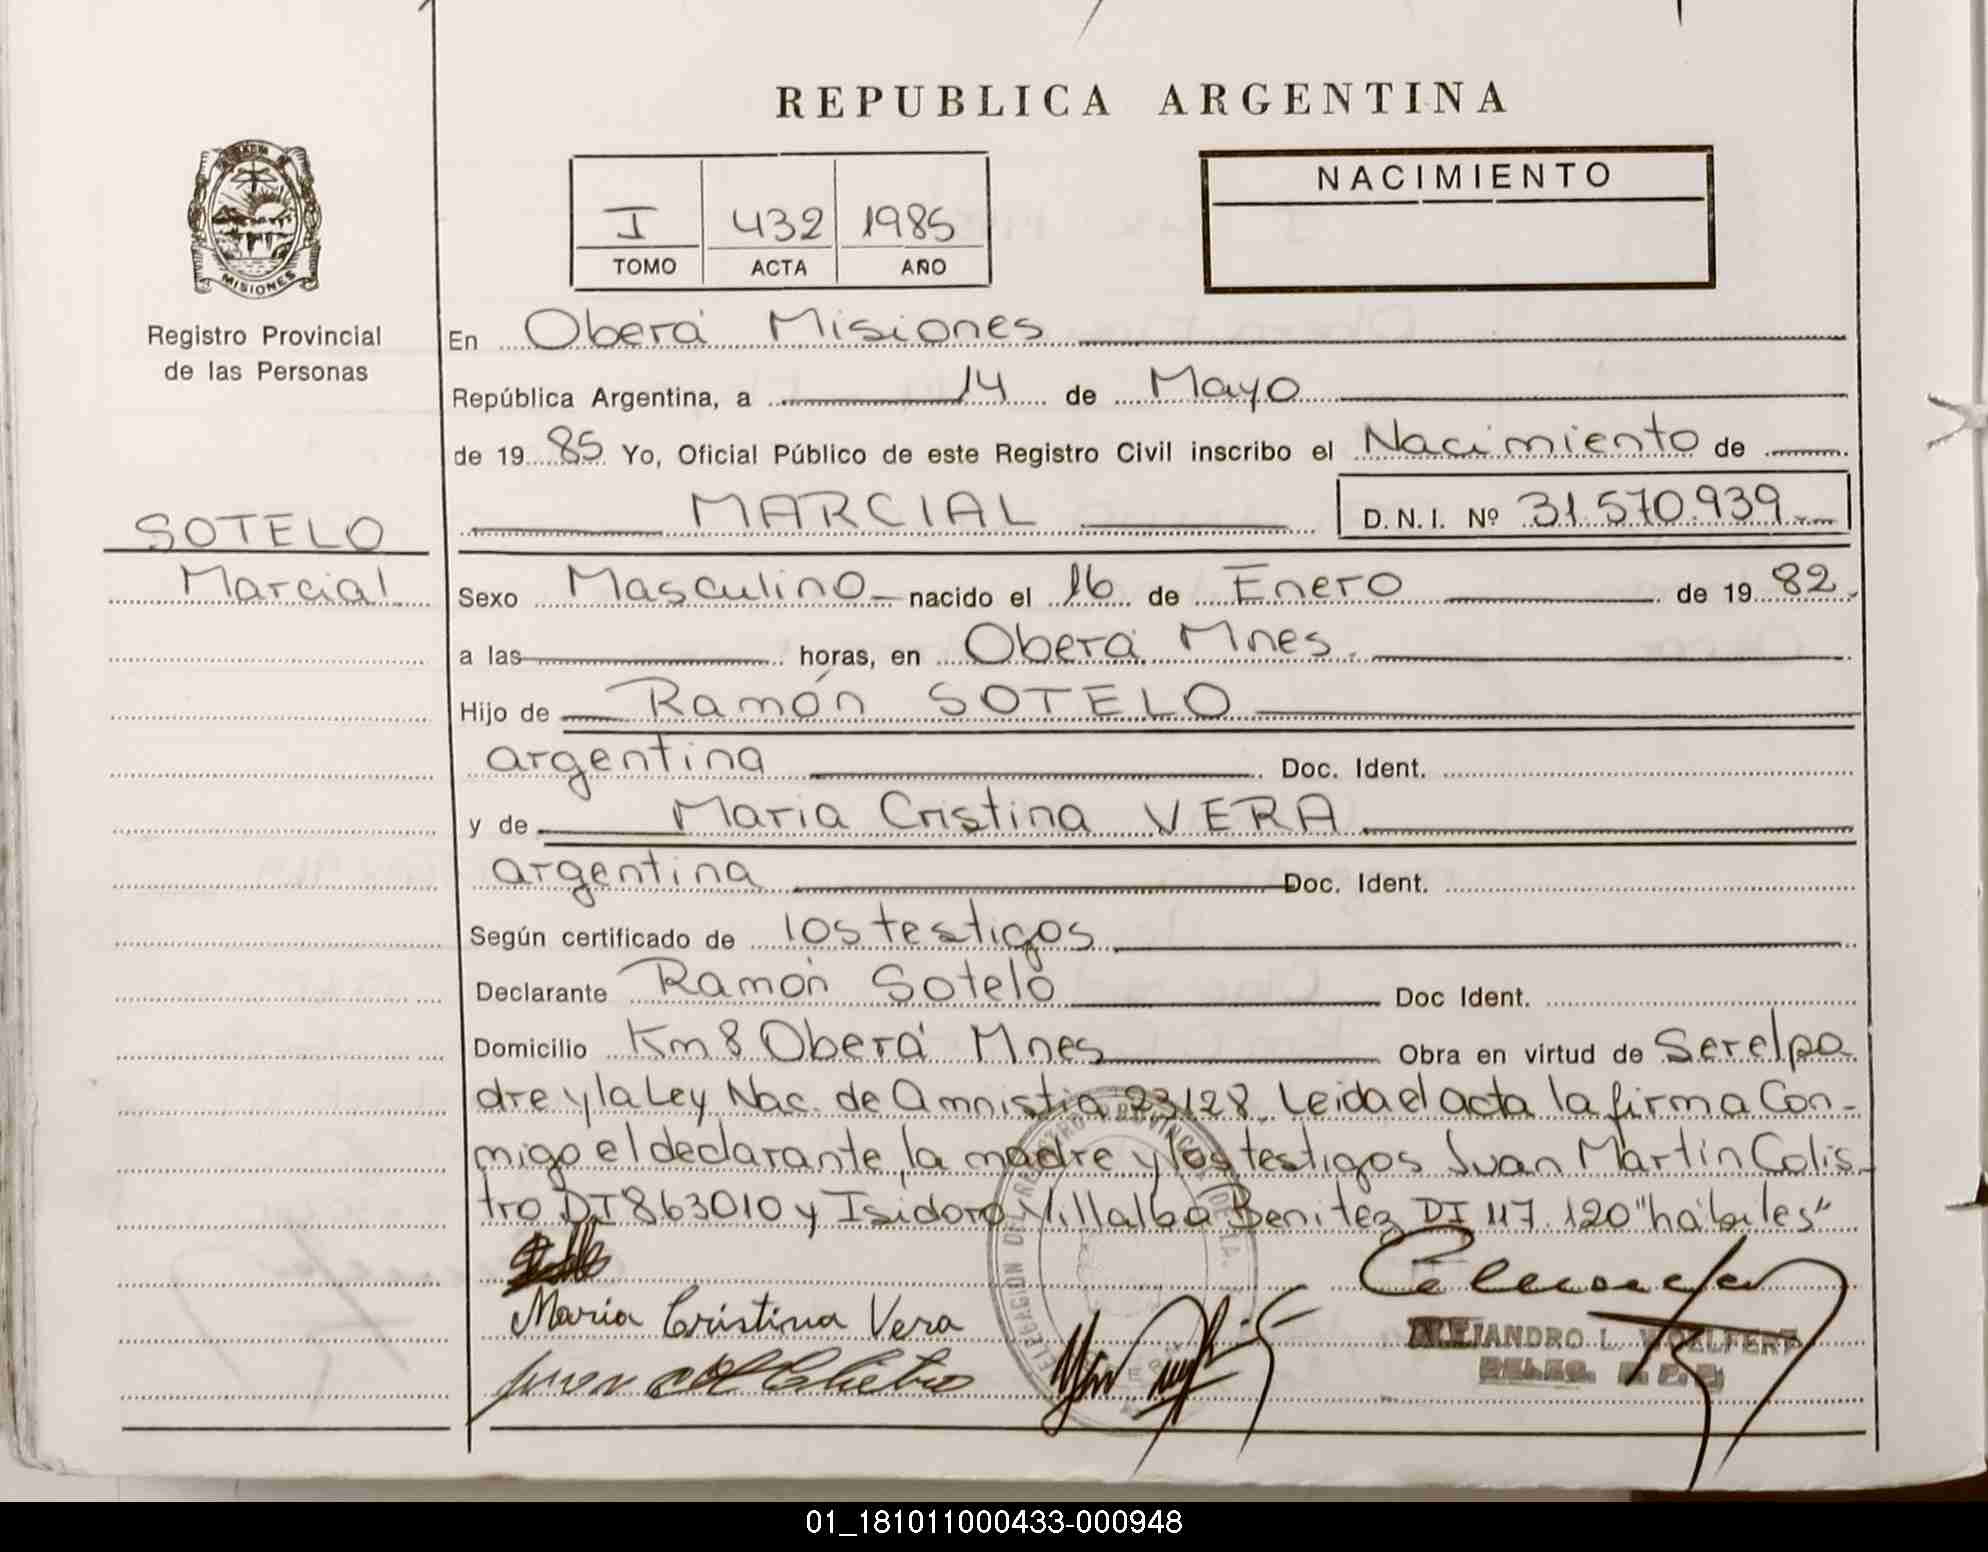 REPUBLICA ARGENTINA
NACIMIENTO
I 432 1985
TOMO ACTA AÑO
MISIONES
Registro Provincial
de las Personas
En Oberá Misiones
República Argentina, a 14 de Mayo
de 1985 Yo, Oficial Público de este Registro Civil inscribo el Nacimiento de
MARCIAL D.N.I. Nº 31.570.939
SOTELO
Marcial
Sexo Masculino nacido el 16 de Enero de 1982
a las horas, en Oberá Mnes.
Hijo de Ramón SOTELO
argentina Doc. Ident.
y de Maria Cristina VERA
argentina Doc. Ident.
Según certificado de los testigos
Declarante Ramón Sotelo Doc Ident.
Domicilio Km 8 Oberá Mnes Obra en virtud de Ser el pa
dre y la Ley Nac. de Amnistia 23128. Leida el acta la firma Con-
migo el declarante, la madre y los testigos Juan Martin Colis
tro DI 863010 y Isidoro Villalba Benitez DI 117.120 "hábiles"
Maria Cristina Vera
ALEJANDRO L. WOELFERT
DELEG. R. P. P.
01_181011000433-000948